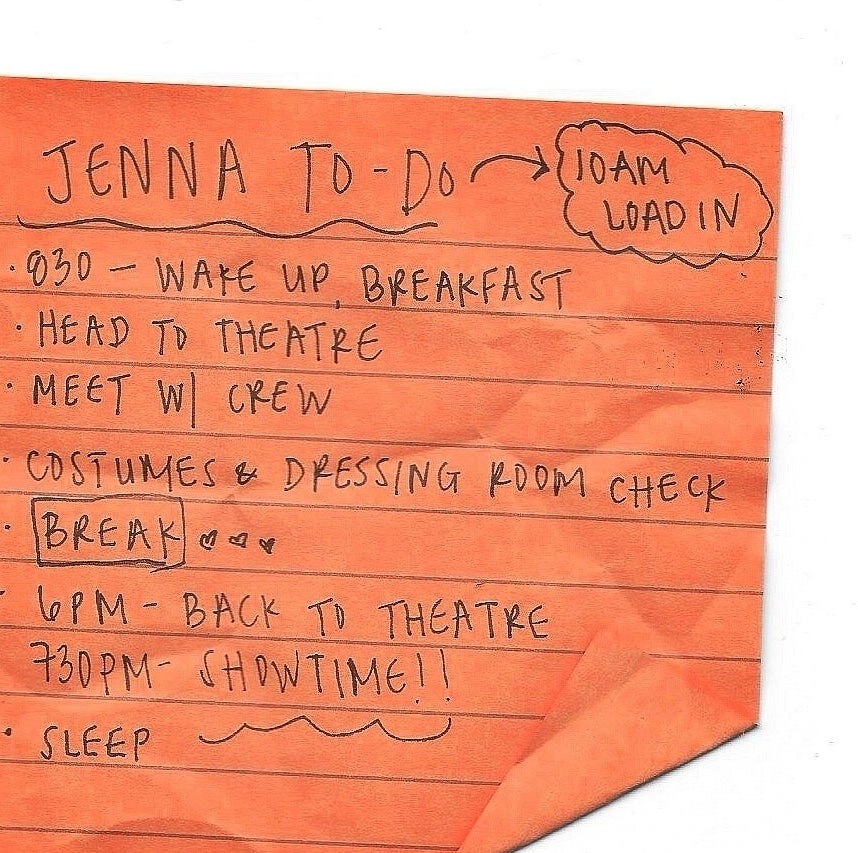 JENNA TO-DO
10AM
LOAD IN
· 830 – WAKE UP, BREAKFAST
· HEAD TO THEATRE
· MEET W/ CREW
· COSTUMES & DRESSING ROOM CHECK
· BREAK
· 6PM - BACK TO THEATRE
730PM- SHOWTIME!!
· SLEEP